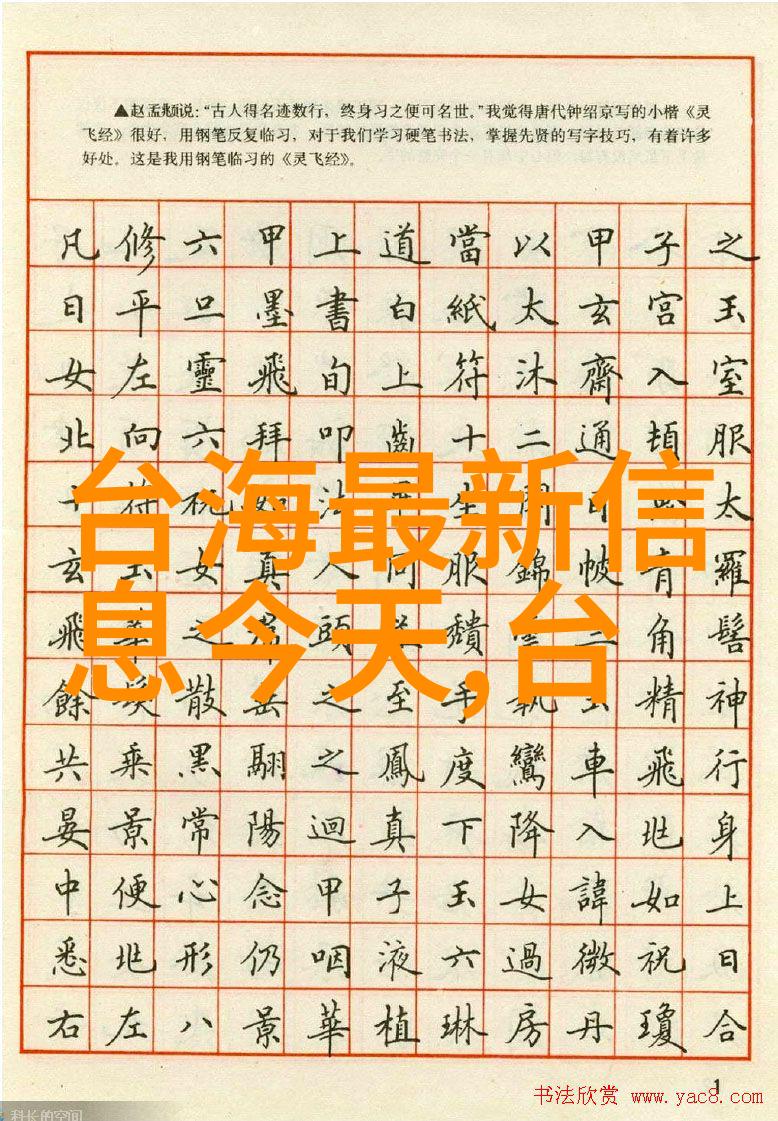 ▲赵孟頫说：“古人得名迹数行，终身习之便可名世。”我觉得唐代钟绍京写的小楷《灵
飞经》很好，用钢笔反复临习，对于我们学习硬笔书法，掌握先贤的写字技巧，有着许多
好处。这是我用钢笔临习的《灵飞经》。
凡修六甲上道當以甲子之
日平旦墨書白紙太玄宮玉
女左靈飛旬上符沐齋入室
北向六拜叩齒十二通頓服
十符祝如法平坐閉目思太
台海最新信
玄玉女真人同服錦帔青羅
飛華之帬頭並頹雲三角髻
息今天,台
餘髮散垂之至手執玄精神
共乘黑翮之鳳度鸞車飛行
晏景常陽迴真下降入北身
中便心念甲子玉女諱如上
悉北形仍咽液六過微祝日
右左八景華植琳房丹瓊合
1
书法欣赏 www.yac8.com
科长的空间